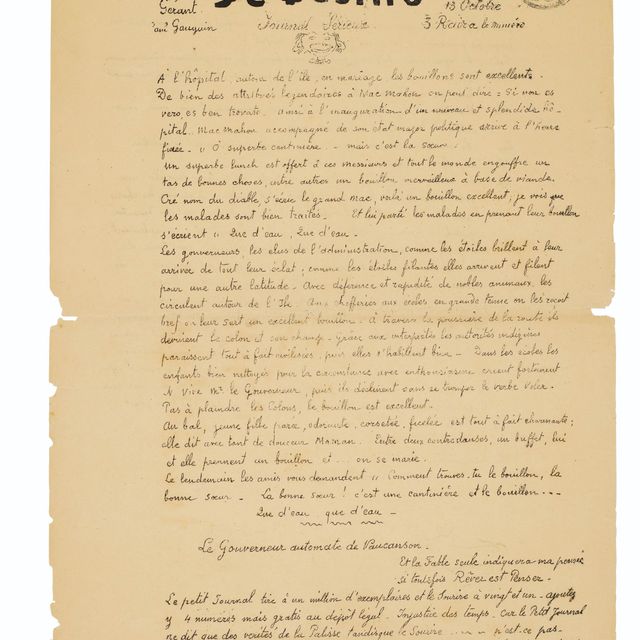 Gérant
Paul Gauguin
Journal Sérieux
13 Octobre
3 Rivière la minière
À l'hôpital, autour de l'île, en mariage les bouillons sont excellents.
De bien des attribués légendaires à Mac Mahon on peut dire = Si non es
vero, es ben trovato. ainsi à l'inauguration d'un nouveau et splendide hô-
pital. Mac Mahon accompagné de son état major politique arrive à l'heure
fixée. « O superbe cantinière - mais c'est la sœur!
Un superbe lunch est offert à ces messieurs et tout le monde engouffre un
tas de bonnes choses, entre autres un bouillon merveilleux à base de viande.
Cré nom du diable, s'écrie le grand Mac, voilà un bouillon excellent; je vois que
les malades sont bien traités. Et lui parti les malades en prenant leur bouillon
s'écrient « Que d'eau, Que d'eau.
Les gouverneurs, les élus de l'administration, comme les étoiles brillent à leur
arrivée de tout leur éclat; comme les étoiles filantes elles arrivent et filent
pour une autre latitude. Avec déférence et rapidité de nobles animaux, les
circulent autour de l'Ile. Aux chefferies aux écoles en grande tenue on les reçoit
bref on leur sert un excellent bouillon. À travers la poussière de la route ils
devinent le colon et son champ - grâce aux interprètes les autorités indigènes
paraissent tout à fait civilisées, puis elles s'habillent bien - Dans les écoles les
enfants bien nettoyés pour la circonstance avec enthousiasme crient fortement
« Vive Mr le Gouverneur, puis ils déclinent sans se tromper le verbe Voler.
Pas à plaindre les Colons, le bouillon est excellent.
Au bal, jeune fille parée, odorante, corsetée, ficelée est tout à fait charmante;
elle dit avec tant de douceur Maman. Entre deux contredanses, un buffet, lui
et elle prennent un bouillon et ... on se marie.
Le lendemain les amis vous demandent « Comment trouves-tu le bouillon, la
bonne sœur - La bonne Sœur! c'est une cantinière et le bouillon ...
Que d'eau que d'eau -
Le Gouverneur automate de Vaucanson.
Et la Fable seule indiquera ma pensée
si toutefois Rêver est Penser.
Le petit Journal tire à un million d'exemplaires et le Sourire à vingt et un - ajoutez
y 4 numéros mais gratis au dépôt légal. Injustice des temps, car le Petit Journal
ne dit que des vérités de la Palisse tandisque le Sourire ... n'est-ce pas.